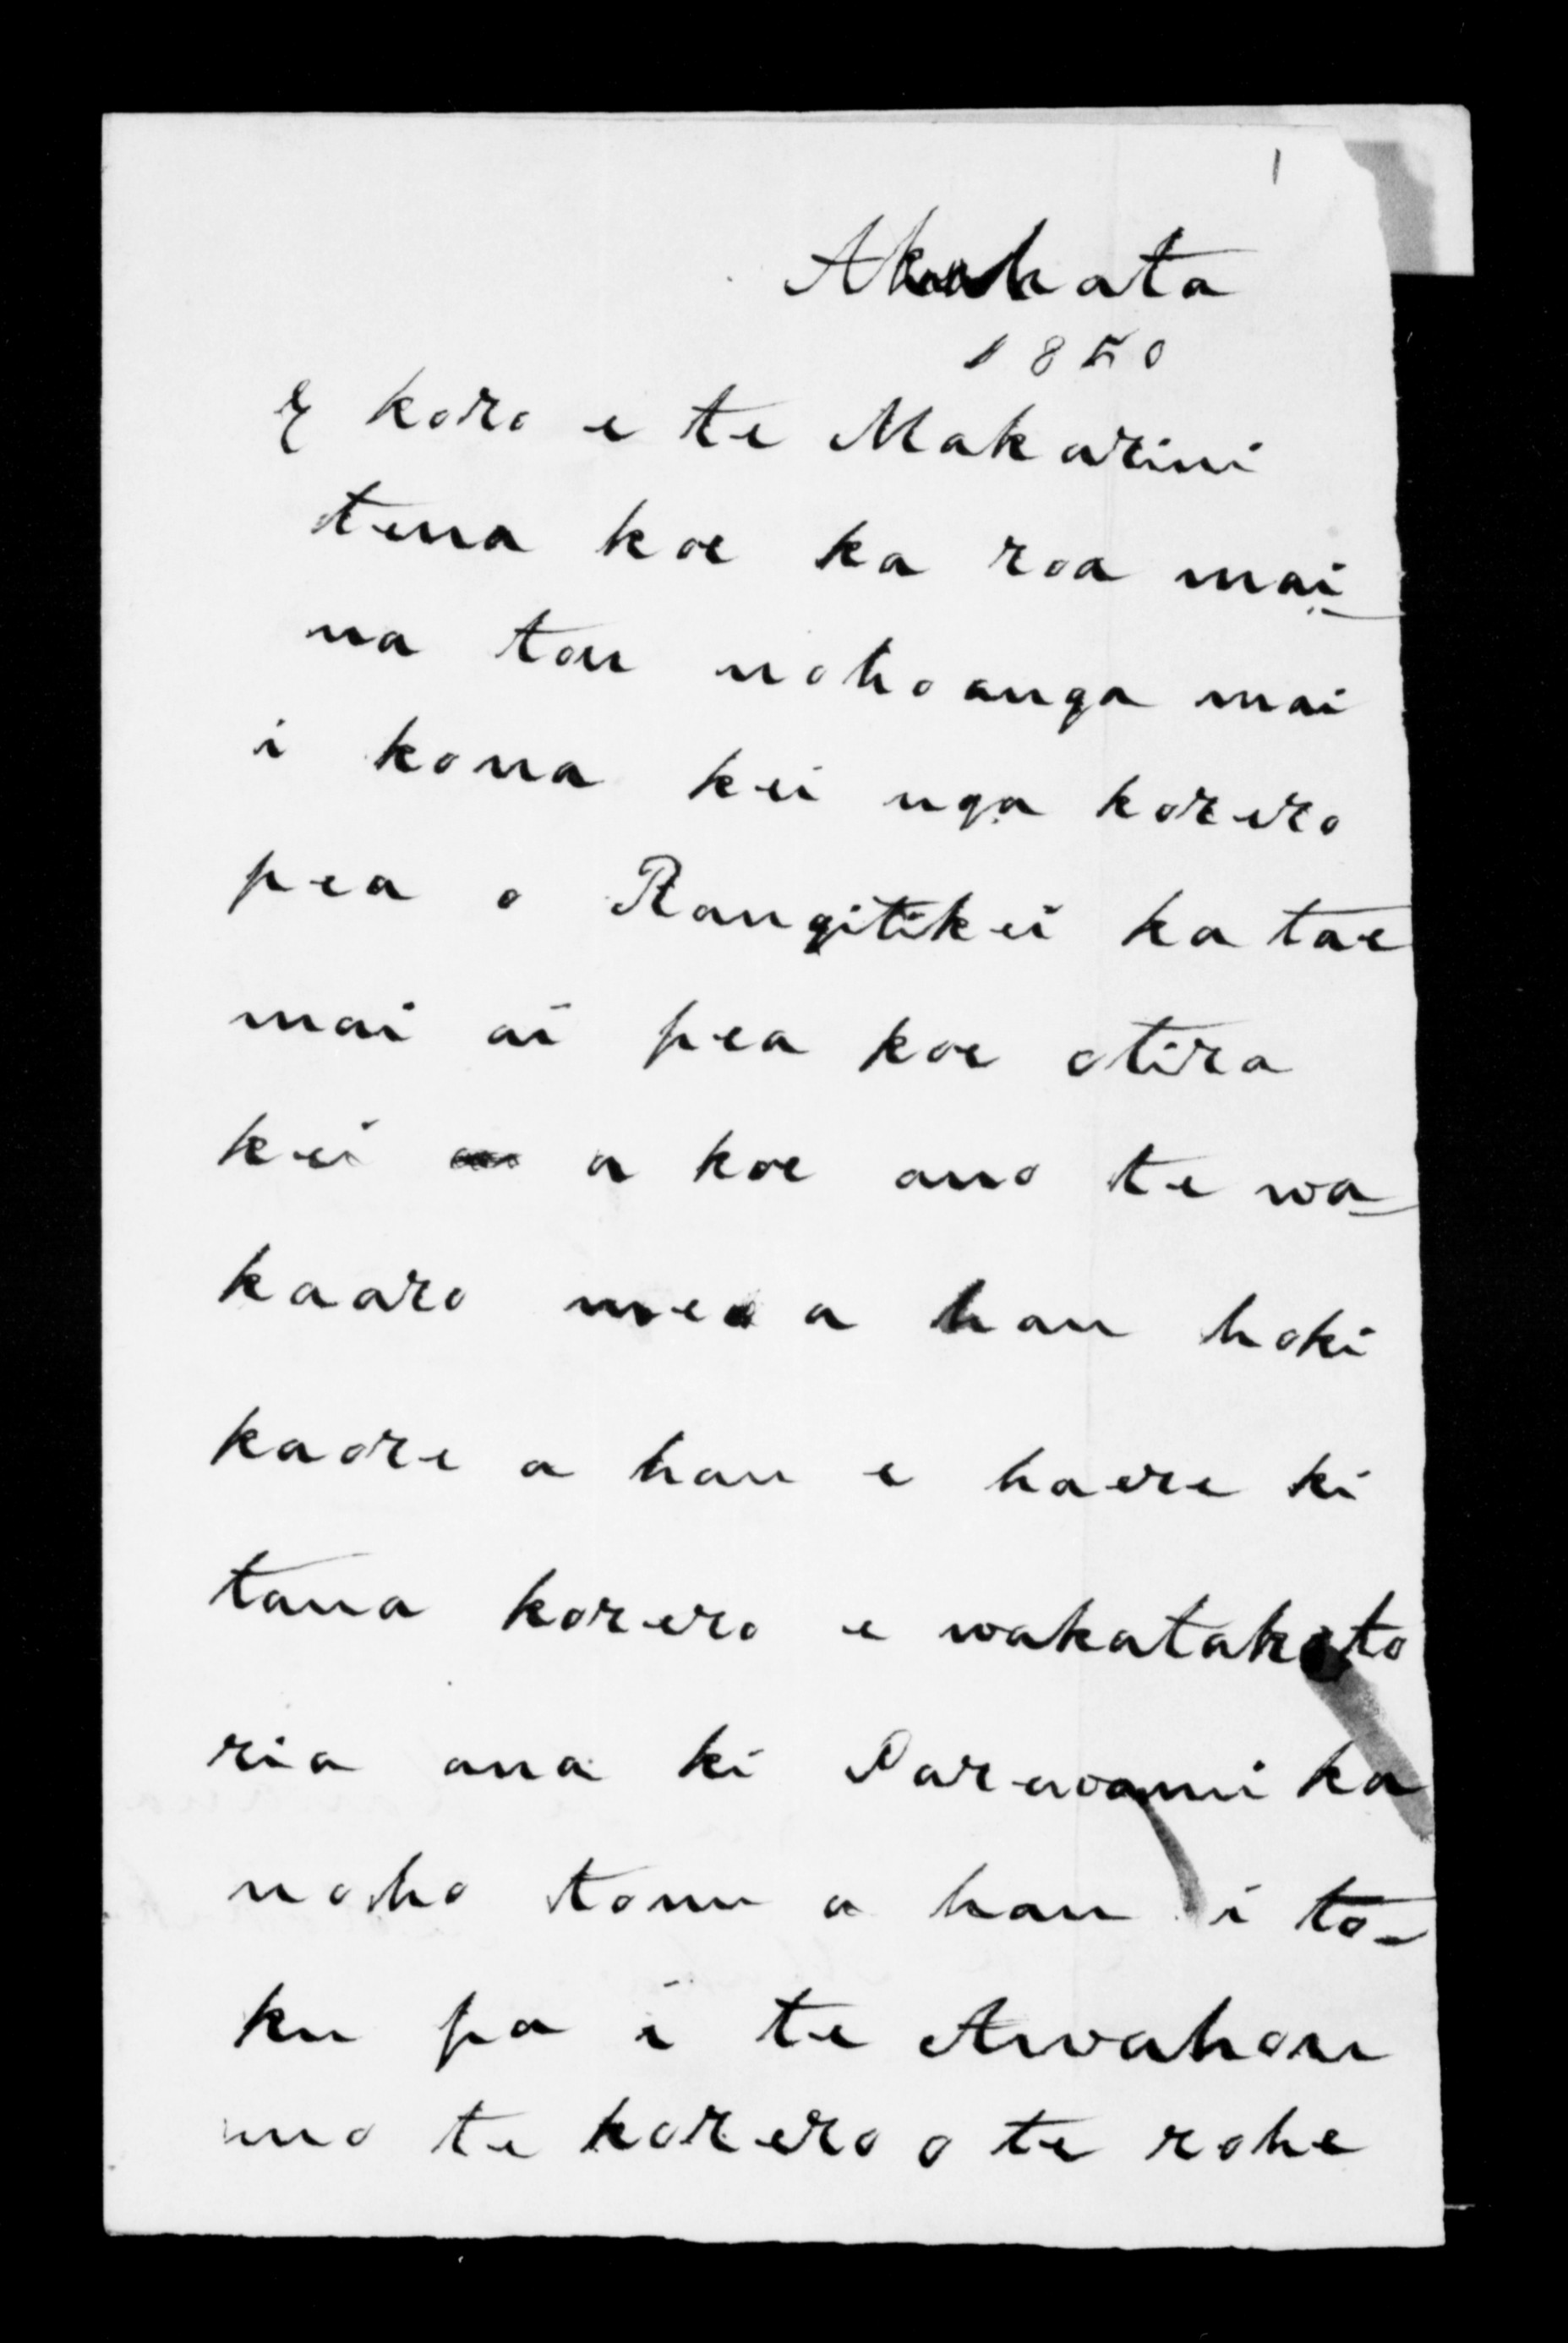 1
Akuhata
1850
E koro e te Makarini
tena koe ka roa mai-
na tou nohoanga mai
i kona kei nga korero
pea o Rangitikei ka tae
mai ai pea koe otira
kei a koe ano te wa-
kaaro mea a hau hoki
kaore a hau e haere ki
taua korero e wakatakoto
ria ana ki Parewanui ka
noho tonu a hau i to-
ku pa i te Awahou
mo te korero o te rohe